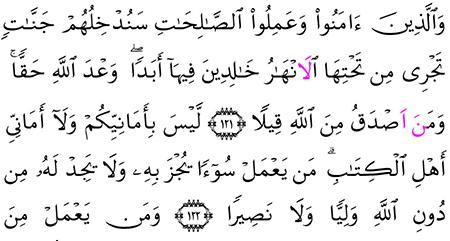 وَالَّذِينَ ءَامَنُوا۟ وَعَمِلُوا۟ الصَّـٰلِحَـٰتِ سَنُدْخِلُهُمْ جَنَّـٰتٍۢ
تَجْرِى مِن تَحْتِهَا اَ۬لَانْهَـٰرُ خَـٰلِدِينَ فِيهَآ أَبَدًاۖ وَعْدَ اَ۬للَّهِ حَقًّاۚ
وَمَنَ اَصْدَقُ مِنَ اَ۬للَّهِ قِيلًا ١٢١ لَّيْسَ بِأَمَانِيِّكُمْ وَلَآ أَمَانِىِّ
أَهْلِ اِ۬لْكِتَـٰبِۗ مَن يَعْمَلْ سُوٓءًا يُجْزَ بِهِۦ وَلَا يَجِدْ لَهُۥ مِن
دُونِ اِ۬للَّهِ وَلِيًّا وَلَا نَصِيرًا ١٢٢ وَمَن يَعْمَلْ مِنَ